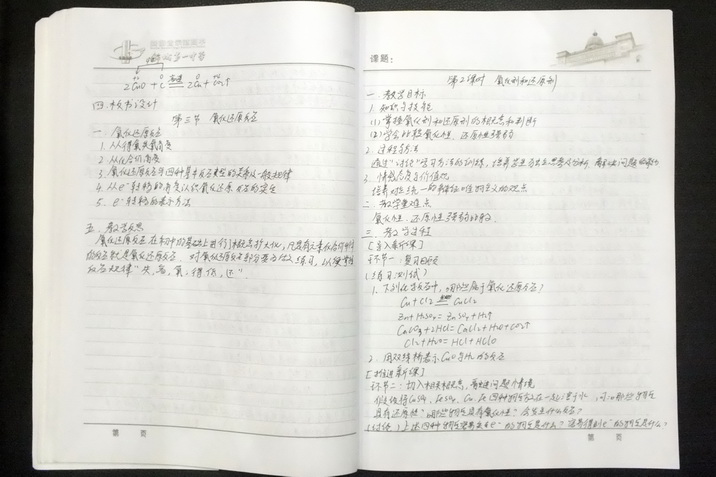 2CuO + C 高温 2Cu + CO₂↑
四、板书设计
第三节 氧化还原反应
一、氧化还原反应
1. 从得氧失氧角度
2. 从化合价角度
3. 氧化还原反应与四种基本反应类型的关系 一般规律
4. 从e⁻转移的角度认识氧化还原反应的实质
5. e⁻转移的表示方法
五、教学反思
氧化还原反应在初中的基础上进行了概念扩大化,凡是有元素化合价
的反应就是氧化还原反应. 对氧化还原反应部分要多做练习, 以便掌握
反应规律"失, 高, 氧; 得, 低, 还".
课题:
第2课时 氧化剂和还原剂
一、教学目标
1. 知识与技能
(1) 掌握氧化剂和还原剂的概念和判断
(2) 学会比较氧化性、还原性强弱
2. 过程与方法
通过"讨论"学习方法的训练, 培养学生
3. 情感态度与价值观
培养对立统一的辩证唯物主义的观点
二、教学重难点
氧化性、还原性强弱的
三、教学过程
[导入新课]
环节一: 复习回顾
(练习测试)
1. 下列化学反应中, 哪些属于氧化还原反应?
Cu + Cl₂ 点燃 CuCl₂
Zn + H₂SO₄ = ZnSO₄ + H₂↑
CaCO₃ + 2HCl = CaCl₂ + H₂O + CO₂↑
Cl₂ + H₂O = HCl + HClO
2. 用双线桥表示CuO与H₂的反应
[推进新课]
环节二: 切入相关概念, 创造问题情境
假定使得CuSO₄, FeSO₄, Cu, Fe四种物质存在一起, 溶于水, 问: 哪些物质
具有还原性? 哪些物质具有氧化性? 会发生什么反应?
(讨论) 上述四种物质 e⁻的物质是什么? 得到e⁻的物质是什么?
第 页
第 页